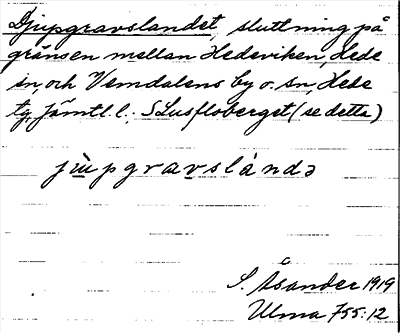 Djupgravslandet, sluttning på
gränsen mellan Hedeviken, Hede
sn, och Vemdalens by o. sn, Hede
tg, Jämtl. l. S Lusfloberget (se detta)
jùpgravslándə
S. Åsander 1919
Ulma 755:12